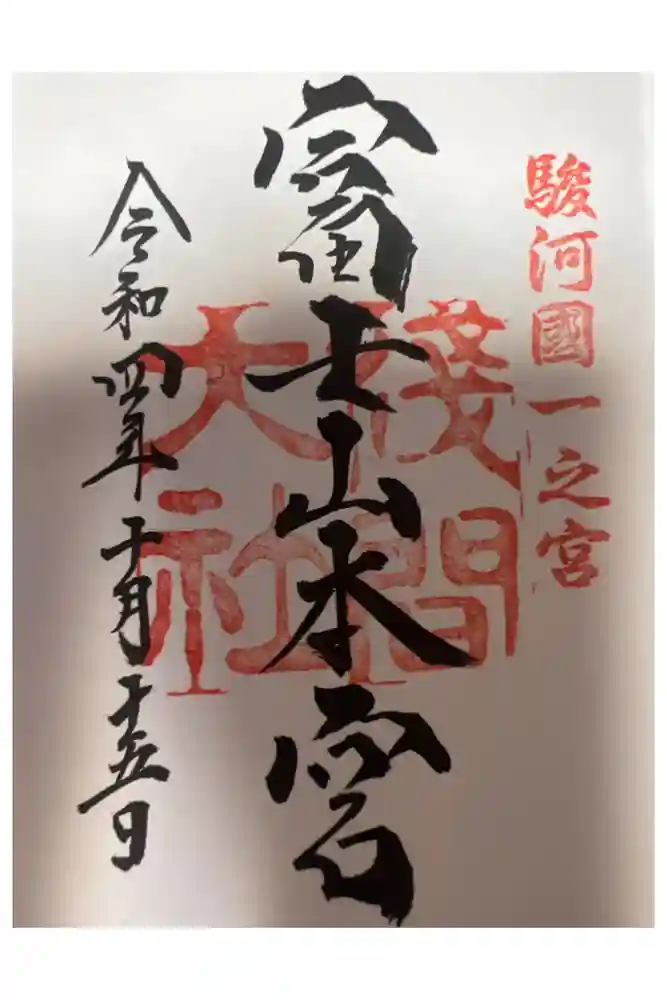 駿河國一之宮
富士山本宮
淺間大社
令和四年十月十五日